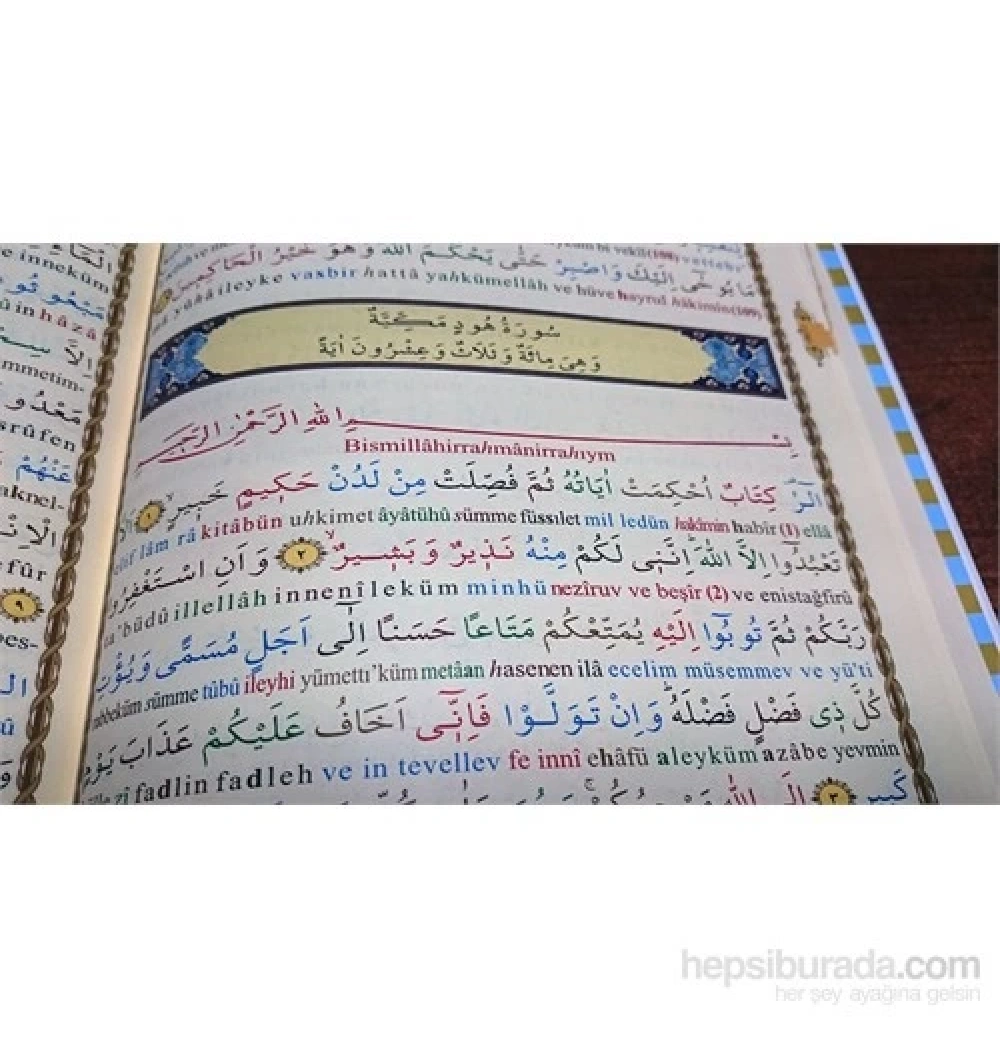 مَا يُوحٰٓى اِلَيْكَ وَاصْبِرْ حَتّٰى يَحْكُمَ اللّٰهُ وَهُوَ خَيْرُ الْحَاكِمِينَ
yûhâ ileyke vasbir hattâ yahkümellâh ve hüve hayrul hâkimîn(109)
سُورَةُ هُودٍ مَكِّيَّةٌ
وَهِىَ مِائَةٌ وَثَلَاثٌ وَعِشْرُونَ اٰيَةً
بِسْمِ اللّٰهِ الرَّحْمٰنِ الرَّحِيمِ
Bismillâhirrahmânirrahıym
الٓرٰ كِتَابٌ اُحْكِمَتْ اٰيَاتُهُ ثُمَّ فُصِّلَتْ مِنْ لَدُنْ حَكِيمٍ خَبِيرٍ ١
elif lâm râ kitâbün uhkimet âyâtühû sümme füssılet mil ledün hakîmin habîr (1) ellâ
تَعْبُدُٓوا اِلَّا اللّٰهَ اِنَّنِى لَكُمْ مِنْهُ نَذِيرٌ وَبَشِيرٌ ٢ وَاَنِ اسْتَغْفِرُوا
ta'büdû illellâh innenî leküm minhü nezîruv ve beşîr (2) ve enistağfirû
رَبَّكُمْ ثُمَّ تُوبُٓوا اِلَيْهِ يُمَتِّعْكُمْ مَتَاعًا حَسَنًا اِلٰٓى اَجَلٍ مُسَمًّى وَيُؤْتِ
rabbeküm sümme tûbû ileyhi yümettı'küm metâan hasenen ilâ ecelim müsemmev ve yü'ti
كُلَّ ذِى فَضْلٍ فَضْلَهُ وَاِنْ تَوَلَّوْا فَاِنِّٓى اَخَافُ عَلَيْكُمْ عَذَابَ يَوْمٍ
zî fadlin fadleh ve in tevellev fe innî ehâfü aleyküm azâbe yevmin
كَبِيرٍ ٣ اِلَى اللّٰهِ
inneküm
hâzâ
mmetim-
srûfen
عَنْهُمْ
aknel-
für
٩
hepsiburada.com
her şey ayağına gelsin